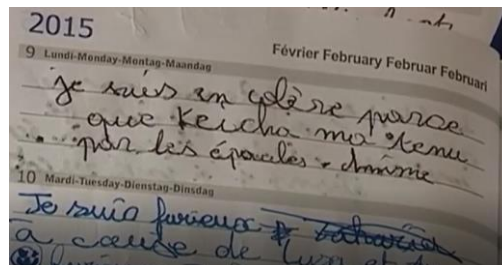 2015
Février February Februar Februari
9 Lundi-Monday-Montag-Maandag
je suis en colère parce
que Keicha ma tenu
par les épaules.
10 Mardi-Tuesday-Dienstag-Dinsdag
Je suis furieux
a cause de